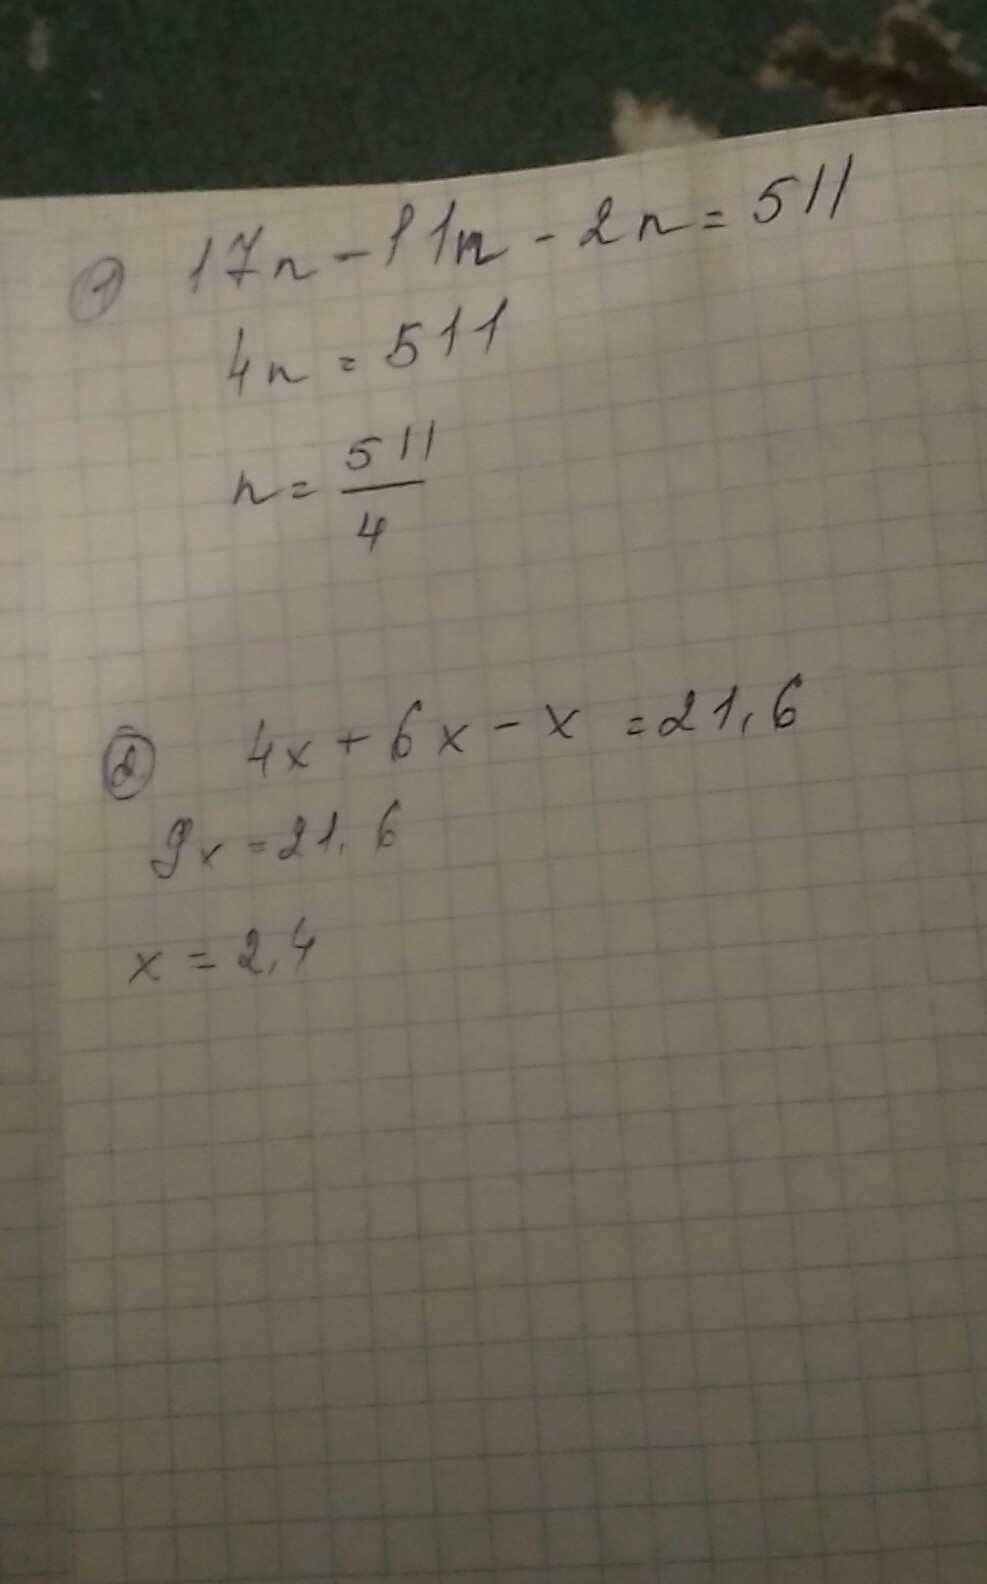 ① 17n - 11n - 2n = 511
4n = 511
n = 511/4
② 4x + 6x - x = 21,6
9x = 21,6
x = 2,4